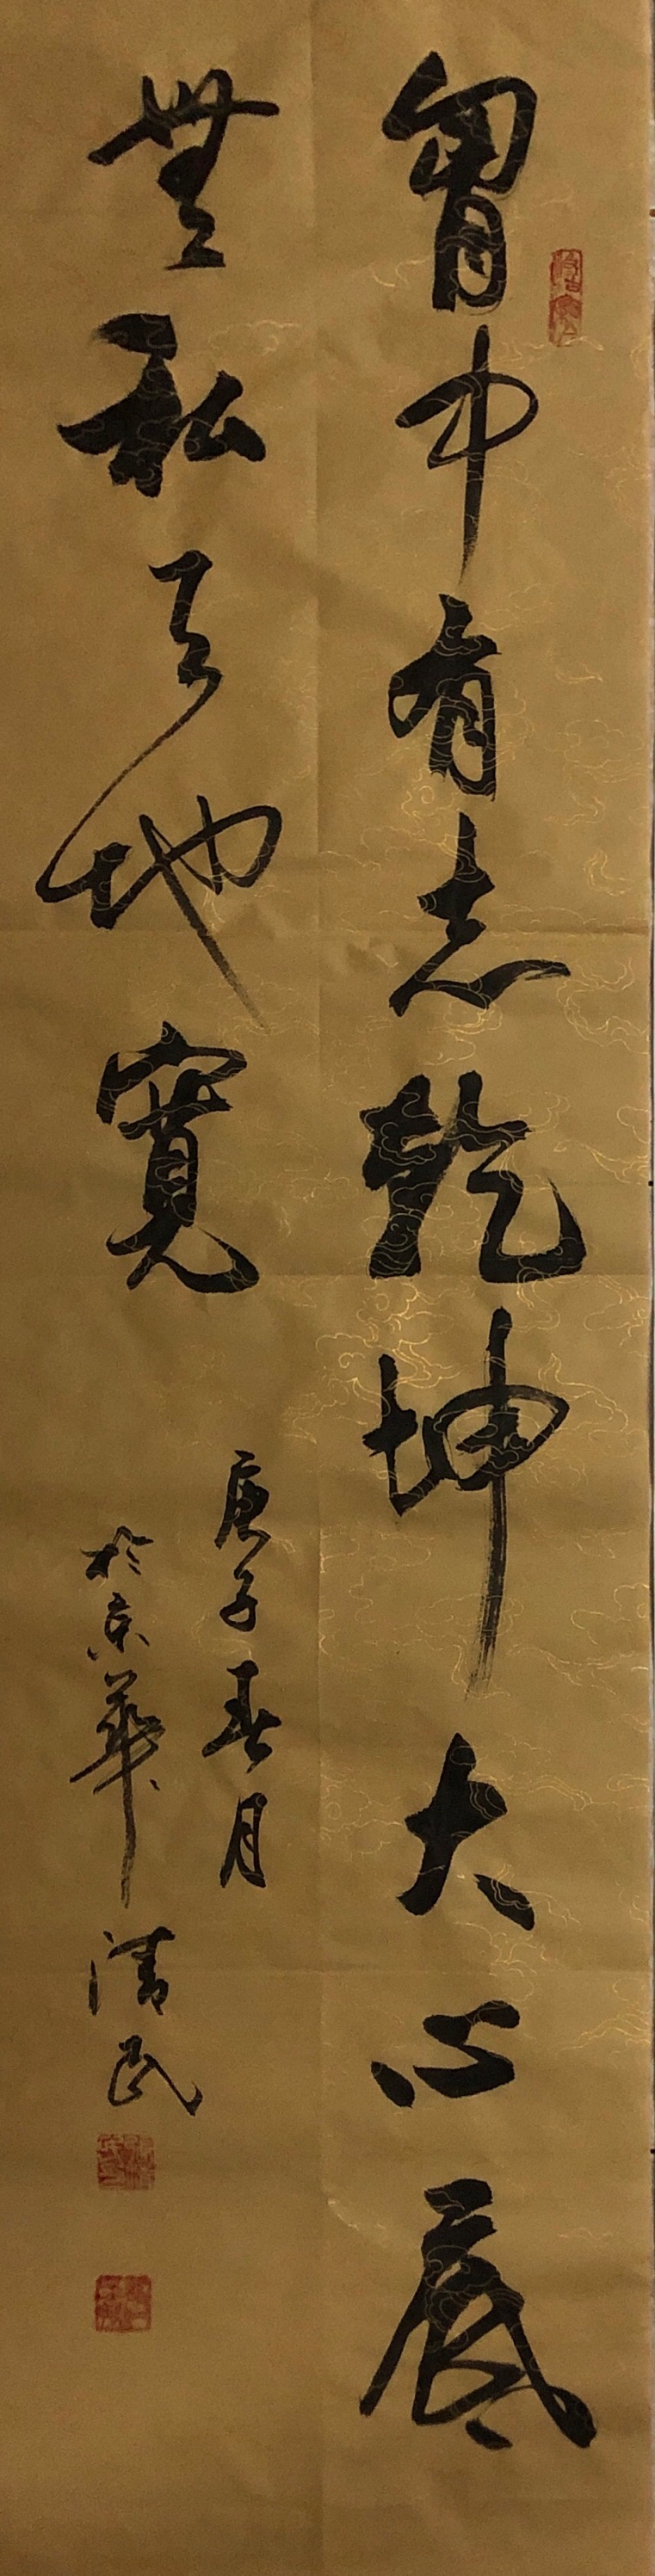 胷中有志乾坤大心底
無私天地寬
庚子春月
於京華清民